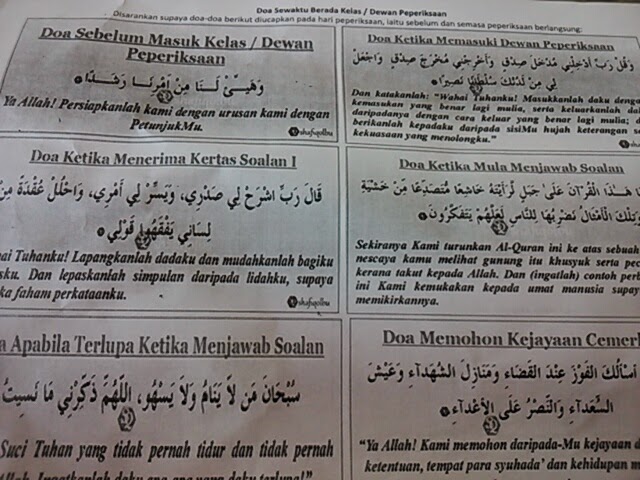 Doa Sewaktu Berada Kelas / Dewan Peperiksaan
Disarankan supaya doa-doa berikut diucapkan pada hari peperiksaan, iaitu sebelum dan semasa peperiksaan berlangsung:
Doa Sebelum Masuk Kelas / Dewan
Peperiksaan
وَهَيِّئْ لَنَا مِنْ أَمْرِنَا رَشَدًا
Ya Allah! Persiapkanlah kami dengan urusan kami dengan
PetunjukMu.
shafiqolbu
Doa Ketika Memasuki Dewan Peperiksaan
وَقُل رَّبِّ أَدْخِلْنِي مُدْخَلَ صِدْقٍ وَأَخْرِجْنِي مُخْرَجَ صِدْقٍ وَاجْعَل
لِّي مِن لَّدُنكَ سُلْطَانًا نَّصِيرًا
Dan katakanlah: "Wahai Tuhanku! Masukkanlah daku dengan
kemasukan yang benar lagi mulia, serta keluarkanlah daku
daripadanya dengan cara keluar yang benar lagi mulia; dan
berikanlah kepadaku daripada sisiMu hujah keterangan serta
kekuasaan yang menolongku."
shafiqolbu
Doa Ketika Menerima Kertas Soalan I
قَالَ رَبِّ اشْرَحْ لِي صَدْرِي، وَيَسِّرْ لِي أَمْرِي، وَاحْلُلْ عُقْدَةً مِنْ
لِسَانِي يَفْقَهُوا قَوْلِي
hai Tuhanku! Lapangkanlah dadaku dan mudahkanlah bagiku
sku. Dan lepaskanlah simpulan daripada lidahku, supaya
ka faham perkataanku.
shafiqolbu
Doa Ketika Mula Menjawab Soalan
هَذَا الْقُرْآنَ عَلَى جَبَلٍ لَرَأَيْتَهُ خَاشِعًا مُتَصَدِّعًا مِنْ خَشْيَةِ
وَتِلْكَ الْأَمْثَالُ نَضْرِبُهَا لِلنَّاسِ لَعَلَّهُمْ يَتَفَكَّرُونَ
Sekiranya Kami turunkan Al-Quran ini ke atas sebuah
nescaya kamu melihat gunung itu khusyuk serta pec
kerana takut kepada Allah. Dan (ingatlah) contoh per
ini Kami kemukakan kepada umat manusia supay
memikirkannya.
a Apabila Terlupa Ketika Menjawab Soalan
سُبْحَانَ مَن لاَ يَنَامُ وَلاَ يَسْهُو، اللَّهُمَّ ذَكِّرْنِي مَا نَسِيتُ
Suci Tuhan yang tidak pernah tidur dan tidak pernah
Allah, Ingatkanlah daku apa-apa yang daku terlupa!"
Doa Memohon Kejayaan Cemerl
أَسْأَلُكَ الْفَوْزَ عِنْدَ الْقَضَاءِ وَمَنَازِلَ الشُّهَدَاءِ وَعَيْشَ
السُّعَدَاءِ وَالنَّصْرَ عَلَى الْأَعْدَاءِ
"Ya Allah! Kami memohon daripada-Mu kejayaan d
ketentuan, tempat para syuhada' dan kehidupan m